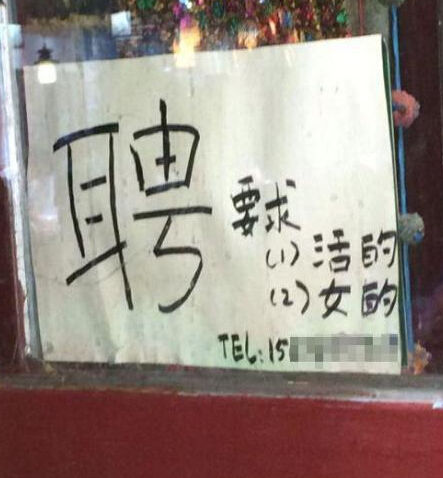 聘
要求
(1)活的
(2)女的
TEL:15